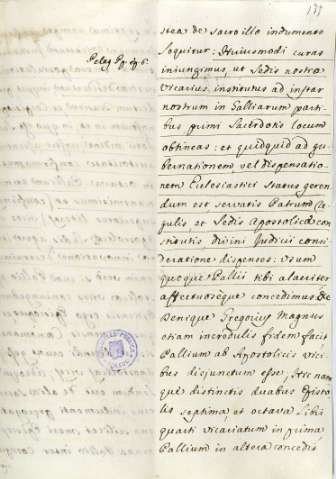 133
Pelag. Pp. ep. 6.
stea de sacro illo indumento
sequitur: Huiusmodi curas
iniungimus, ut Sedis nostræ
Vicarius institutus ad instar
nostrum in Galliarum parti
bus primi Sacerdotis locum
obtineas: et quidquid ad gu-
bernationem, vel dispensatio-
nem Ecclesiastici status geren
dum est servatis Patrum Re-
gulis, et Sedis Apostolicæ con
stitutis divini Judicii consi
deratione dispenses: usum
quoque Pallii tibi alacriter
affectuoseque concedimus &c
Denique Gregorius Magnus
etiam incredulis fidem facit
Pallium ab Apostolicis vici
bus disjunctum esse, Hic nam
que distinctis duabus Epistò
lis septima, et octava Libri
quarti vicariatum in prima
Pallium in altera concedit